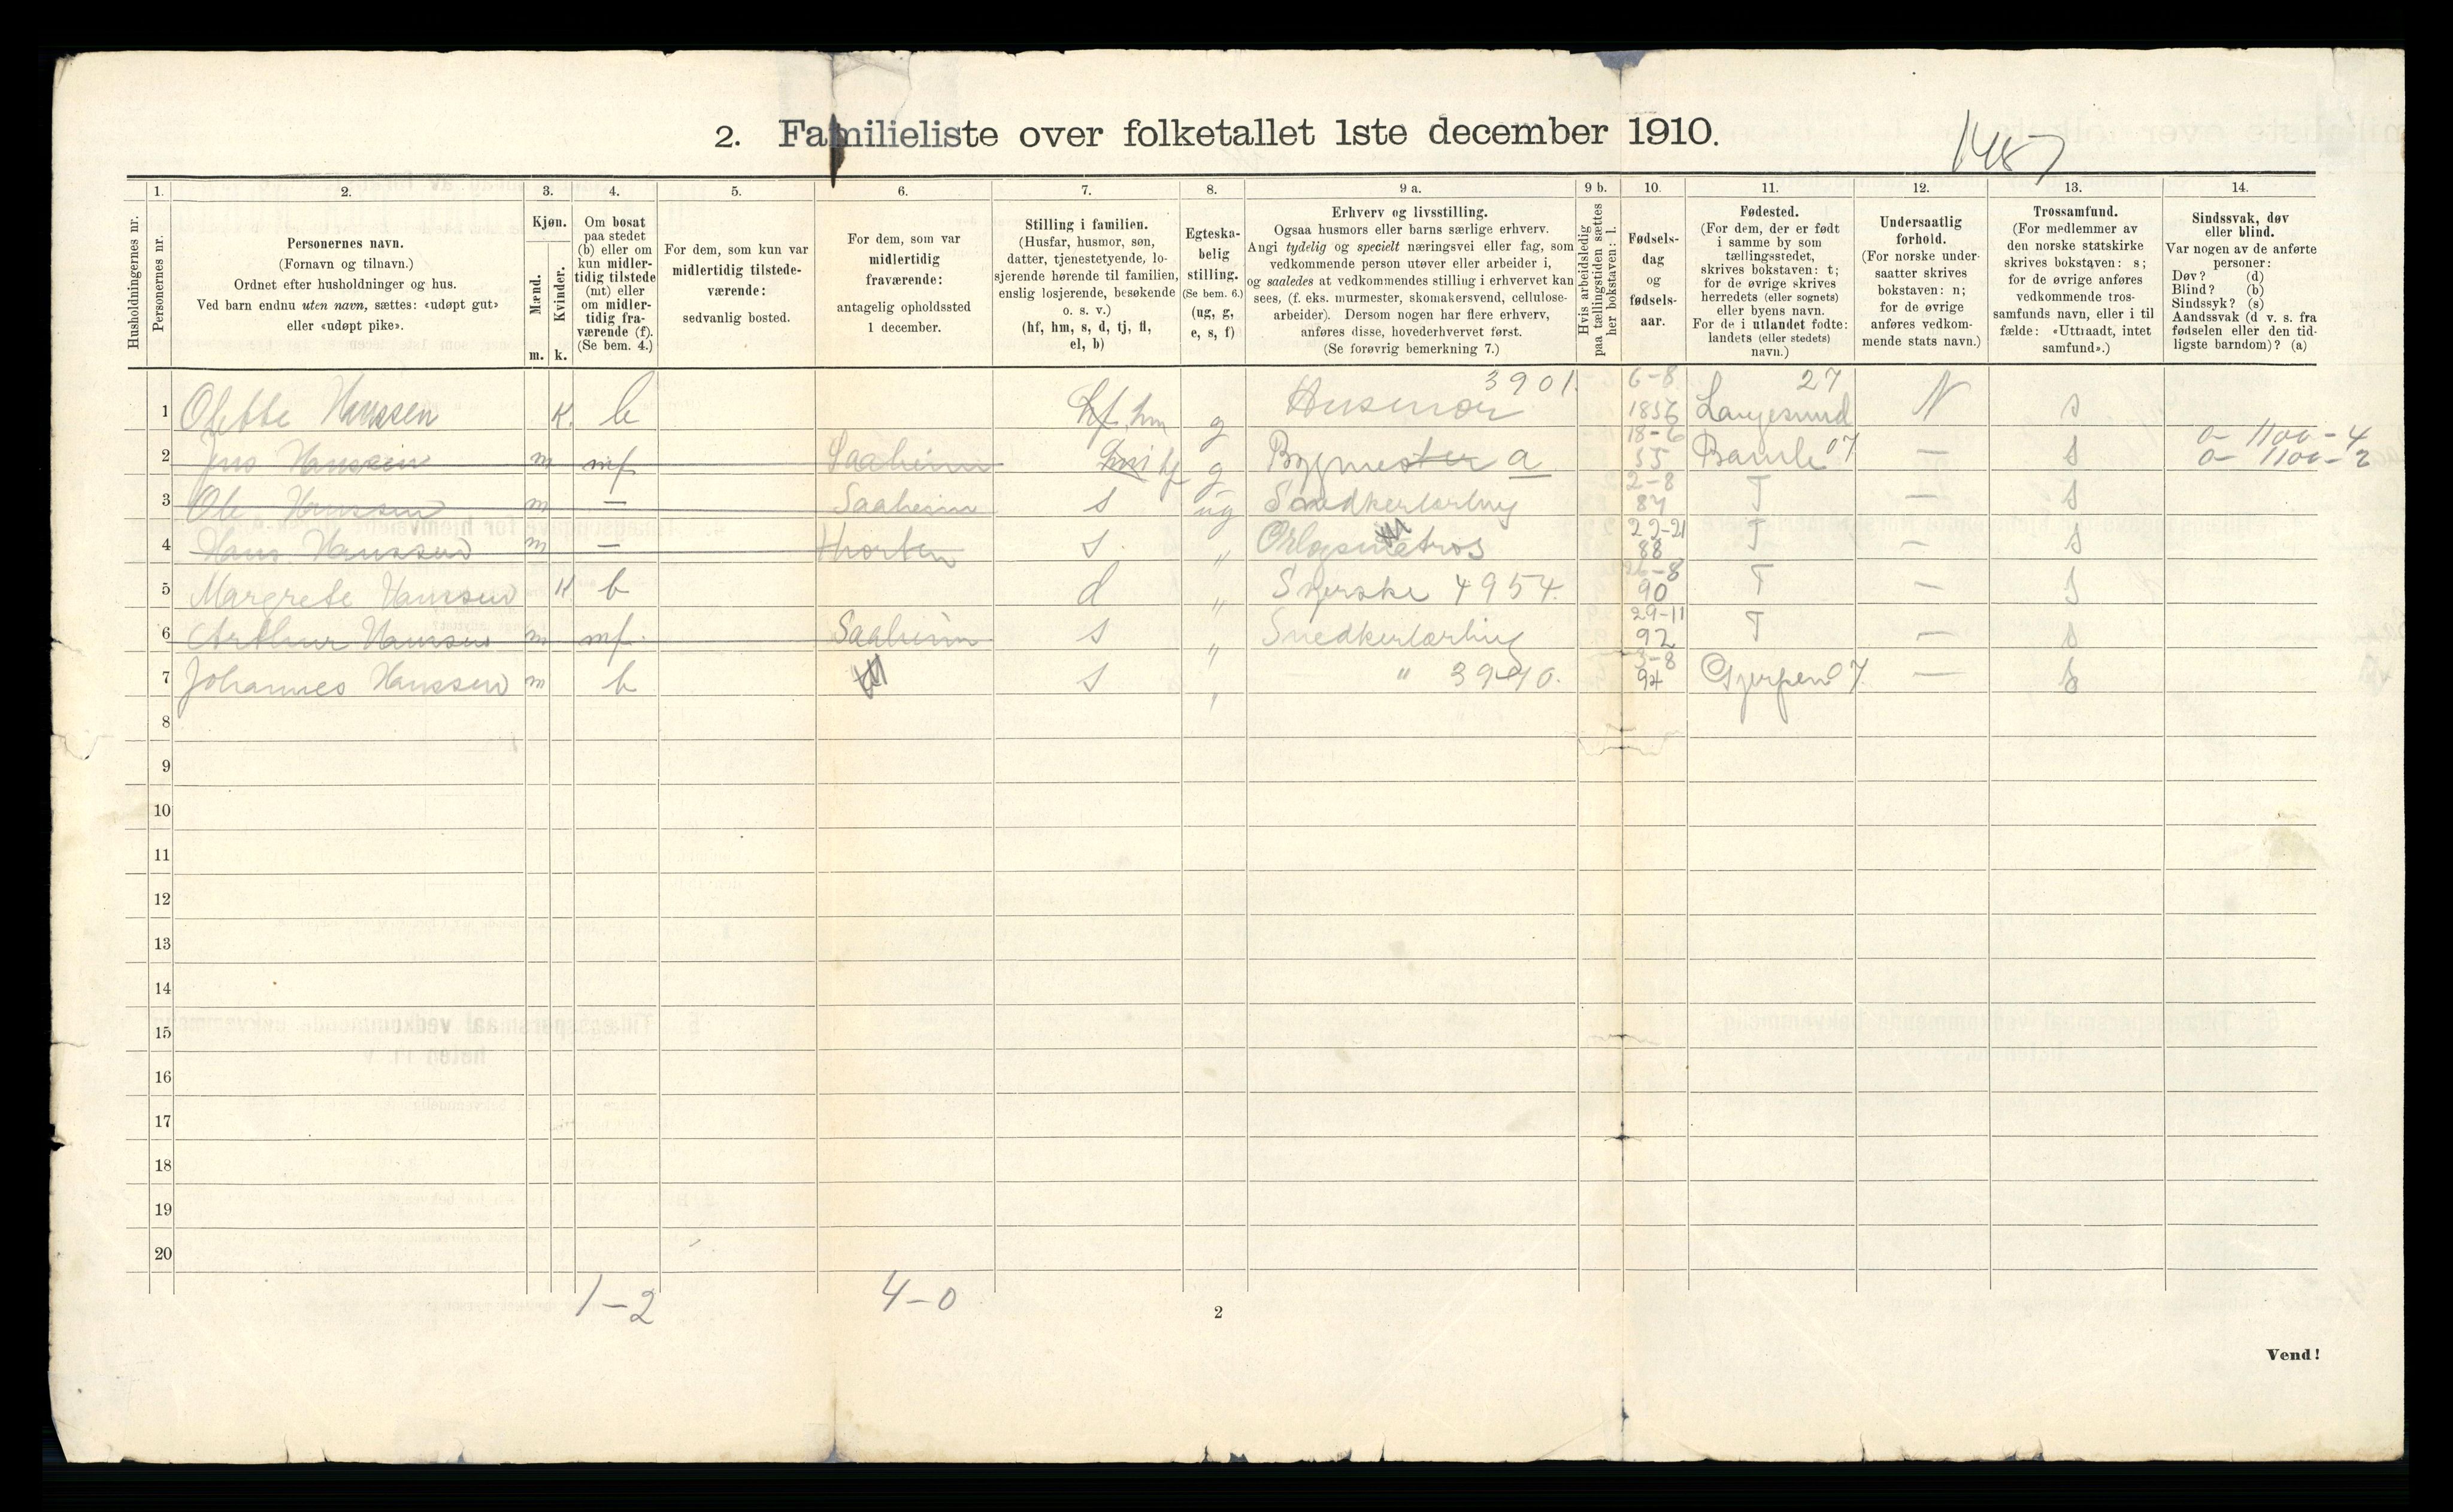 2. Familieliste over folketallet 1ste december 1910.
1487
Husholdningernes nr.
1.
Personernes nr.
2.
Personernes navn.
(Fornavn og tilnavn.)
Ordnet efter husholdninger og hus.
Ved barn endnu uten navn, sættes: «udøpt gut»
eller «udøpt pike».
3.
Kjøn.
Mænd.
Kvinder.
m. k.
4.
Om bosat
paa stedet
(b) eller om
kun midler-
tidig tilstede
(mt) eller
om midler-
tidig fra-
værende (f).
(Se bem. 4.)
5.
For dem, som kun var
midlertidig tilstede-
værende:
sedvanlig bosted.
6.
For dem, som var
midlertidig
fraværende:
antagelig opholdssted
1 december.
7.
Stilling i familien.
(Husfar, husmor, søn,
datter, tjenestetyende, lo-
sjerende hørende til familien,
enslig losjerende, besøkende
o. s. v.)
(hf, hm, s, d, tj, fl,
el, b)
8.
Egteska-
belig
stilling.
(Se bem. 6.)
(ug, g,
e, s, f)
9 a.
Erhverv og livsstilling.
Ogsaa husmors eller barns særlige erhverv.
Angi tydelig og specielt næringsvei eller fag, som
vedkommende person utøver eller arbeider i,
og saaledes at vedkommendes stilling i erhvervet kan
sees, (f. eks. murmester, skomakersvend, cellulose-
arbeider). Dersom nogen har flere erhverv,
anføres disse, hovederhvervet først.
(Se forøvrig bemerkning 7.)
9 b.
Hvis arbeidsledig
paa tællingstiden sættes
her bokstaven: l.
10.
Fødsels-
dag
og
fødsels-
aar.
11.
Fødested.
(For dem, der er født
i samme by som
tællingsstedet,
skrives bokstaven: t;
for de øvrige skrives
herredets (eller sognets)
eller byens navn.
For de i utlandet fødte:
landets (eller stedets)
navn.)
12.
Undersaatlig
forhold.
(For norske under-
saatter skrives
bokstaven: n;
for de øvrige
anføres vedkom-
mende stats navn.)
13.
Trossamfund.
(For medlemmer av
den norske statskirke
skrives bokstaven: s;
for de øvrige anføres
vedkommende tros-
samfunds navn, eller i til
fælde: «Uttraadt, intet
samfund».)
14.
Sindssvak, døv
eller blind.
Var nogen av de anførte
personer:
Døv? (d)
Blind? (b)
Sindssyk? (s)
Aandssvak (d v. s. fra
fødselen eller den tid-
ligste barndom)? (a)
1 Olette Hanssen K. b hf, hm g Husmor 3901. 6-8 1856 Langesund 27 N s
2 Jens Hanssen m mf Saaheim hm hf g Bygmester a 18-6 55 Bamle 07 — s 0- 1100-4 0- 1100-2
3 Ole Hanssen m — Saaheim s ug Snedkerlærling 2-8 87 T — s
4 Hans Hanssen m — Horten s. " Orlogsmatros 22-21 88 T — s
5 Margrete Hanssen K b d " Syerske 4954. 26-8 90 T — s
6 Arthur Hanssen m mf. Saaheim s " Snedkerlærling 29-11 92 T — s
7 Johannes Hanssen m b s " " 3940. 3-8 94 Gjerpen 07. — s
8
9
10
11
12
13
14
15
16
17
18
19
20
1-2 4-0
2
Vend!